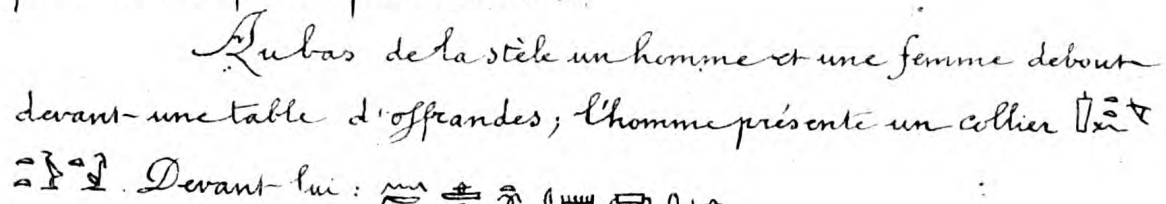 Au bas de la stèle un homme et une femme debout
devant une table d'offrandes ; l'homme présente un collier
. Devant lui :